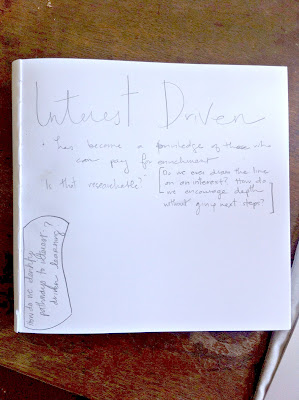 Interest Driven
• has become a knowledge of those who
can pay for enrichment
Is that reachable?
Do we ever draw the line
on an interest? How do
we encourage depth
without giving next steps?
How do we identify
pathways to interest
driven learning?